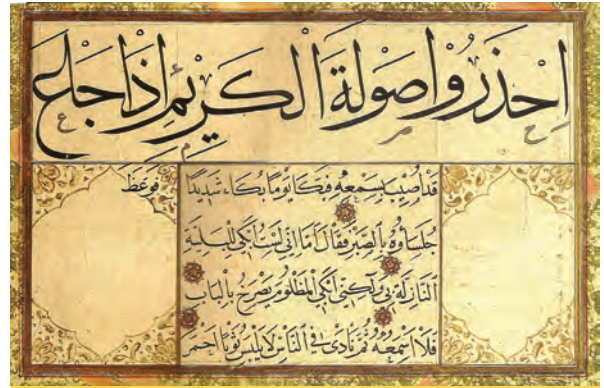 اِحْذَرُوا صَوْلَةَ الْكَرِيْمِ اِذَا جَاعَ
قَدْ اُصِيْبَ بِسَمْعِهِ فَبَكَا يَوْمًا بُكَاءً شَدِيْدًا فَوَعَظَ
جُلَسَاؤُهُ بِالصَّبْرِ فَقَالَ اَمَا اِنِّي لَسْتُ اَبْكِي لِلْبَلِيَّةِ
النَّازِلَةِ بِي وَلٰكِنِّي اَبْكِي لِمَظْلُومٍ يَصْرَخُ بِالْبَابِ
فَلَا اَسْمَعُهُ ثُمَّ نَادٰى فِي النَّاسِ لَا يَلْبَسْ ثَوْبًا اَحْمَرَ